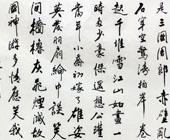 是三國周郎赤壁亂
空驚濤拍岸
起千堆雪江山如畫一
時多少豪傑遙想公瑾
當年小喬初嫁了雄
英發羽扇綸巾談笑
間檣櫓灰飛煙滅故
國神遊多情應笑我